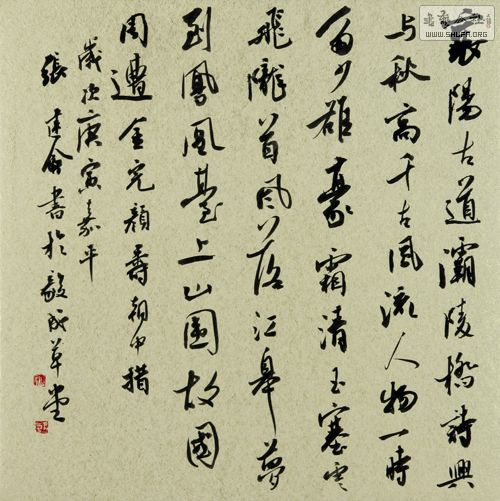 襄陽古道灞陵橋詩興
与秋高千古風流人物一時
多少雄豪霜清玉塞雲
飛隴首風落江皋夢
到鳳凰臺上山圍故國
周遭 金完顏壽朝中措
歲次庚寅嘉平
張建會書於毅成草堂
WWW.SHUFA.ORG